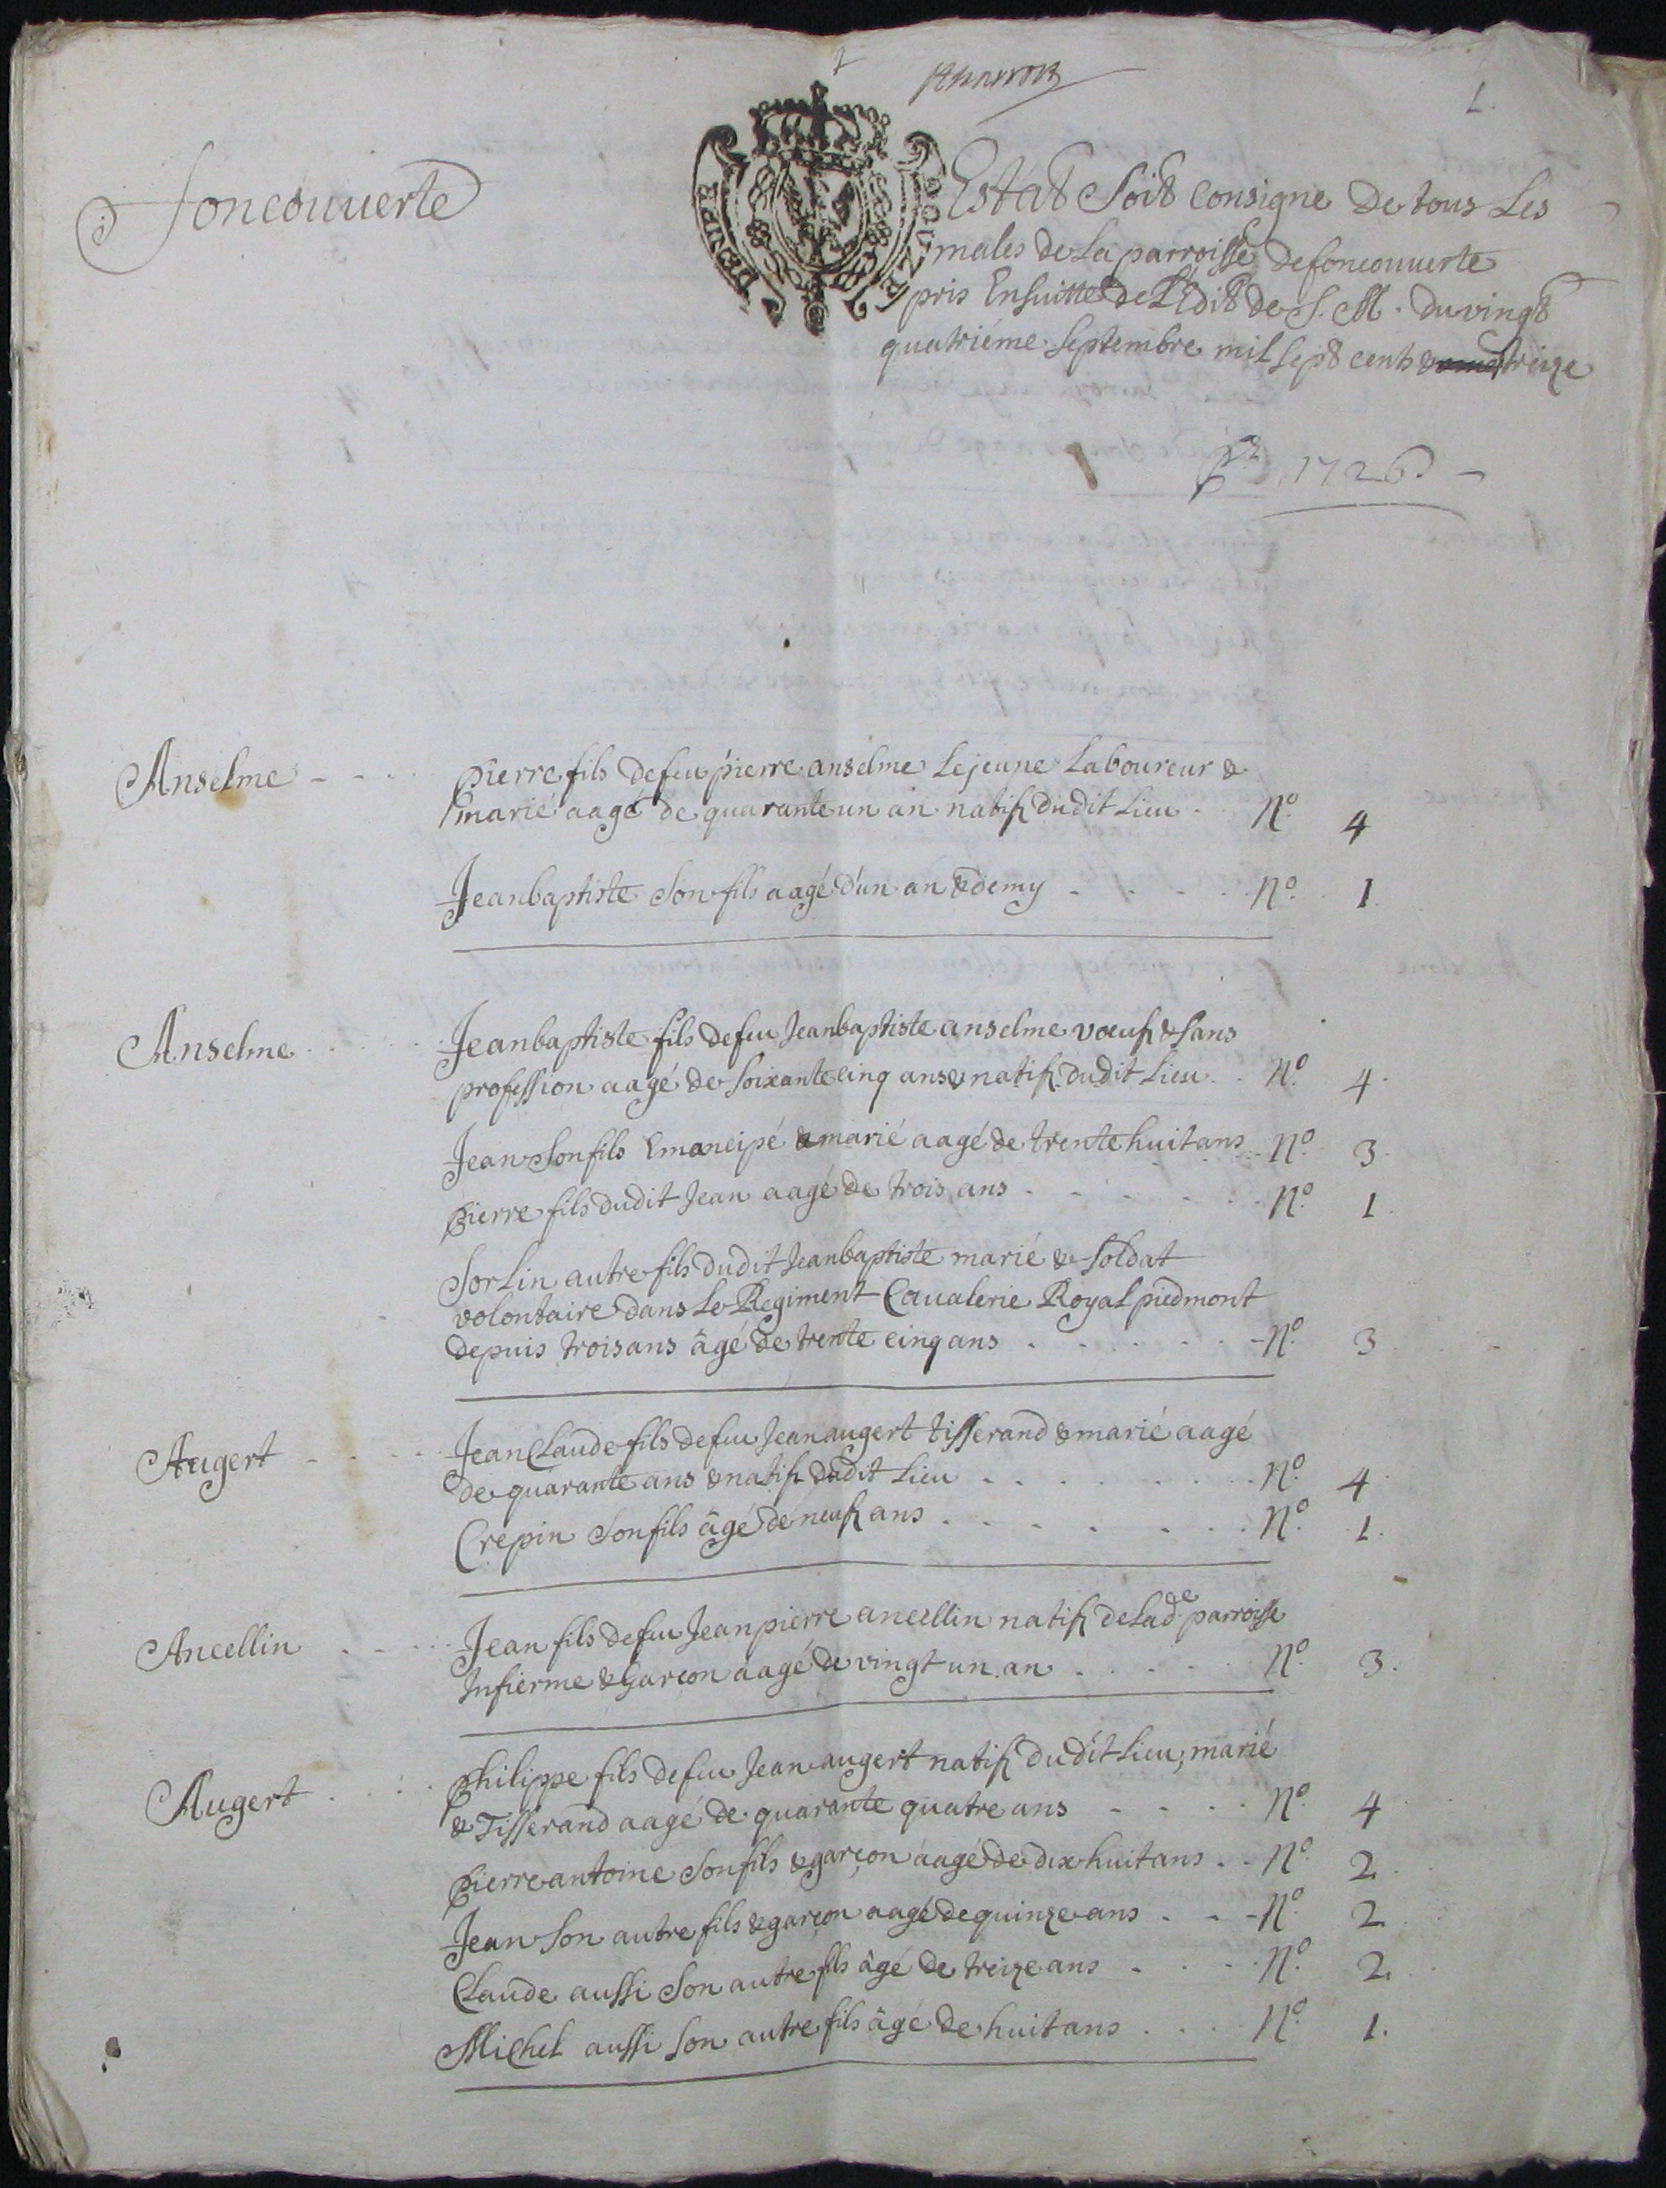 1.
Foncouuerte
Estat Soit consigne De tous Les
males de La parroisse de foncouuerte
pris Ensuitte de L'Edit de S. M. du vingt
quatriéme Septembre mil sept cents treize
1726
Anselme
pierre fils de feu pierre anselme Le jeune Laboureur &
marié aagé de quarante un an natif dudit Lieu N.o 4
Jeanbaptiste Son fils aagé d'un an & demy N.o 1.
Anselme
Jeanbaptiste fils de feu Jeanbaptiste anselme voeuf & sans
profession aagé de soixante cinq ans & natif dudit Lieu N.o 4.
Jean Son fils Emancipé & marié aagé de trente huit ans N.o 3.
pierre fils dudit Jean aagé de trois ans N.o 1.
Sorlin autre fils dudit Jeanbaptiste marié & soldat
volontaire dans Le Regiment Caualerie Royal piedmont
depuis trois ans âgé de trente cinq ans N.o 3
Augert
Jean Claude fils de feu Jean augert tisserand & marié aagé
de quarante ans & natif dudit Lieu N.o 4.
Crepin Son fils âgé de neuf ans N.o 1.
Ancellin
Jean fils de feu Jean pierre ancellin natif de Lad.e parroisse
Infierme & Garcon aagé de vingt un an N.o 3.
Augert
philippe fils de feu Jean augert natif dudit Lieu, marié
& Tisserand aagé de quarante quatre ans N.o 4
pierre antoine Son fils & garçon aagé de dix huit ans N.o 2.
Jean Son autre fils & garçon aagé de quinze ans N.o 2
Claude aussi Son autre fils âgé de treize ans N.o 2.
Michel aussi Son autre fils âgé de huit ans N.o 1.